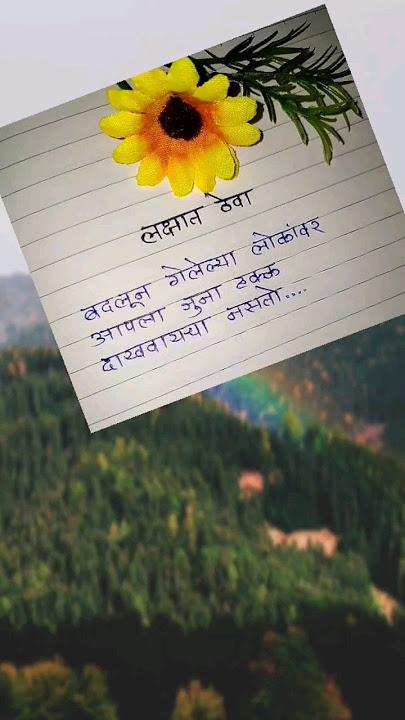 लक्षात ठेवा
बदलून गेलेल्या लोकांवर
आपला जुना हक्क
दाखवायचा नसतो....